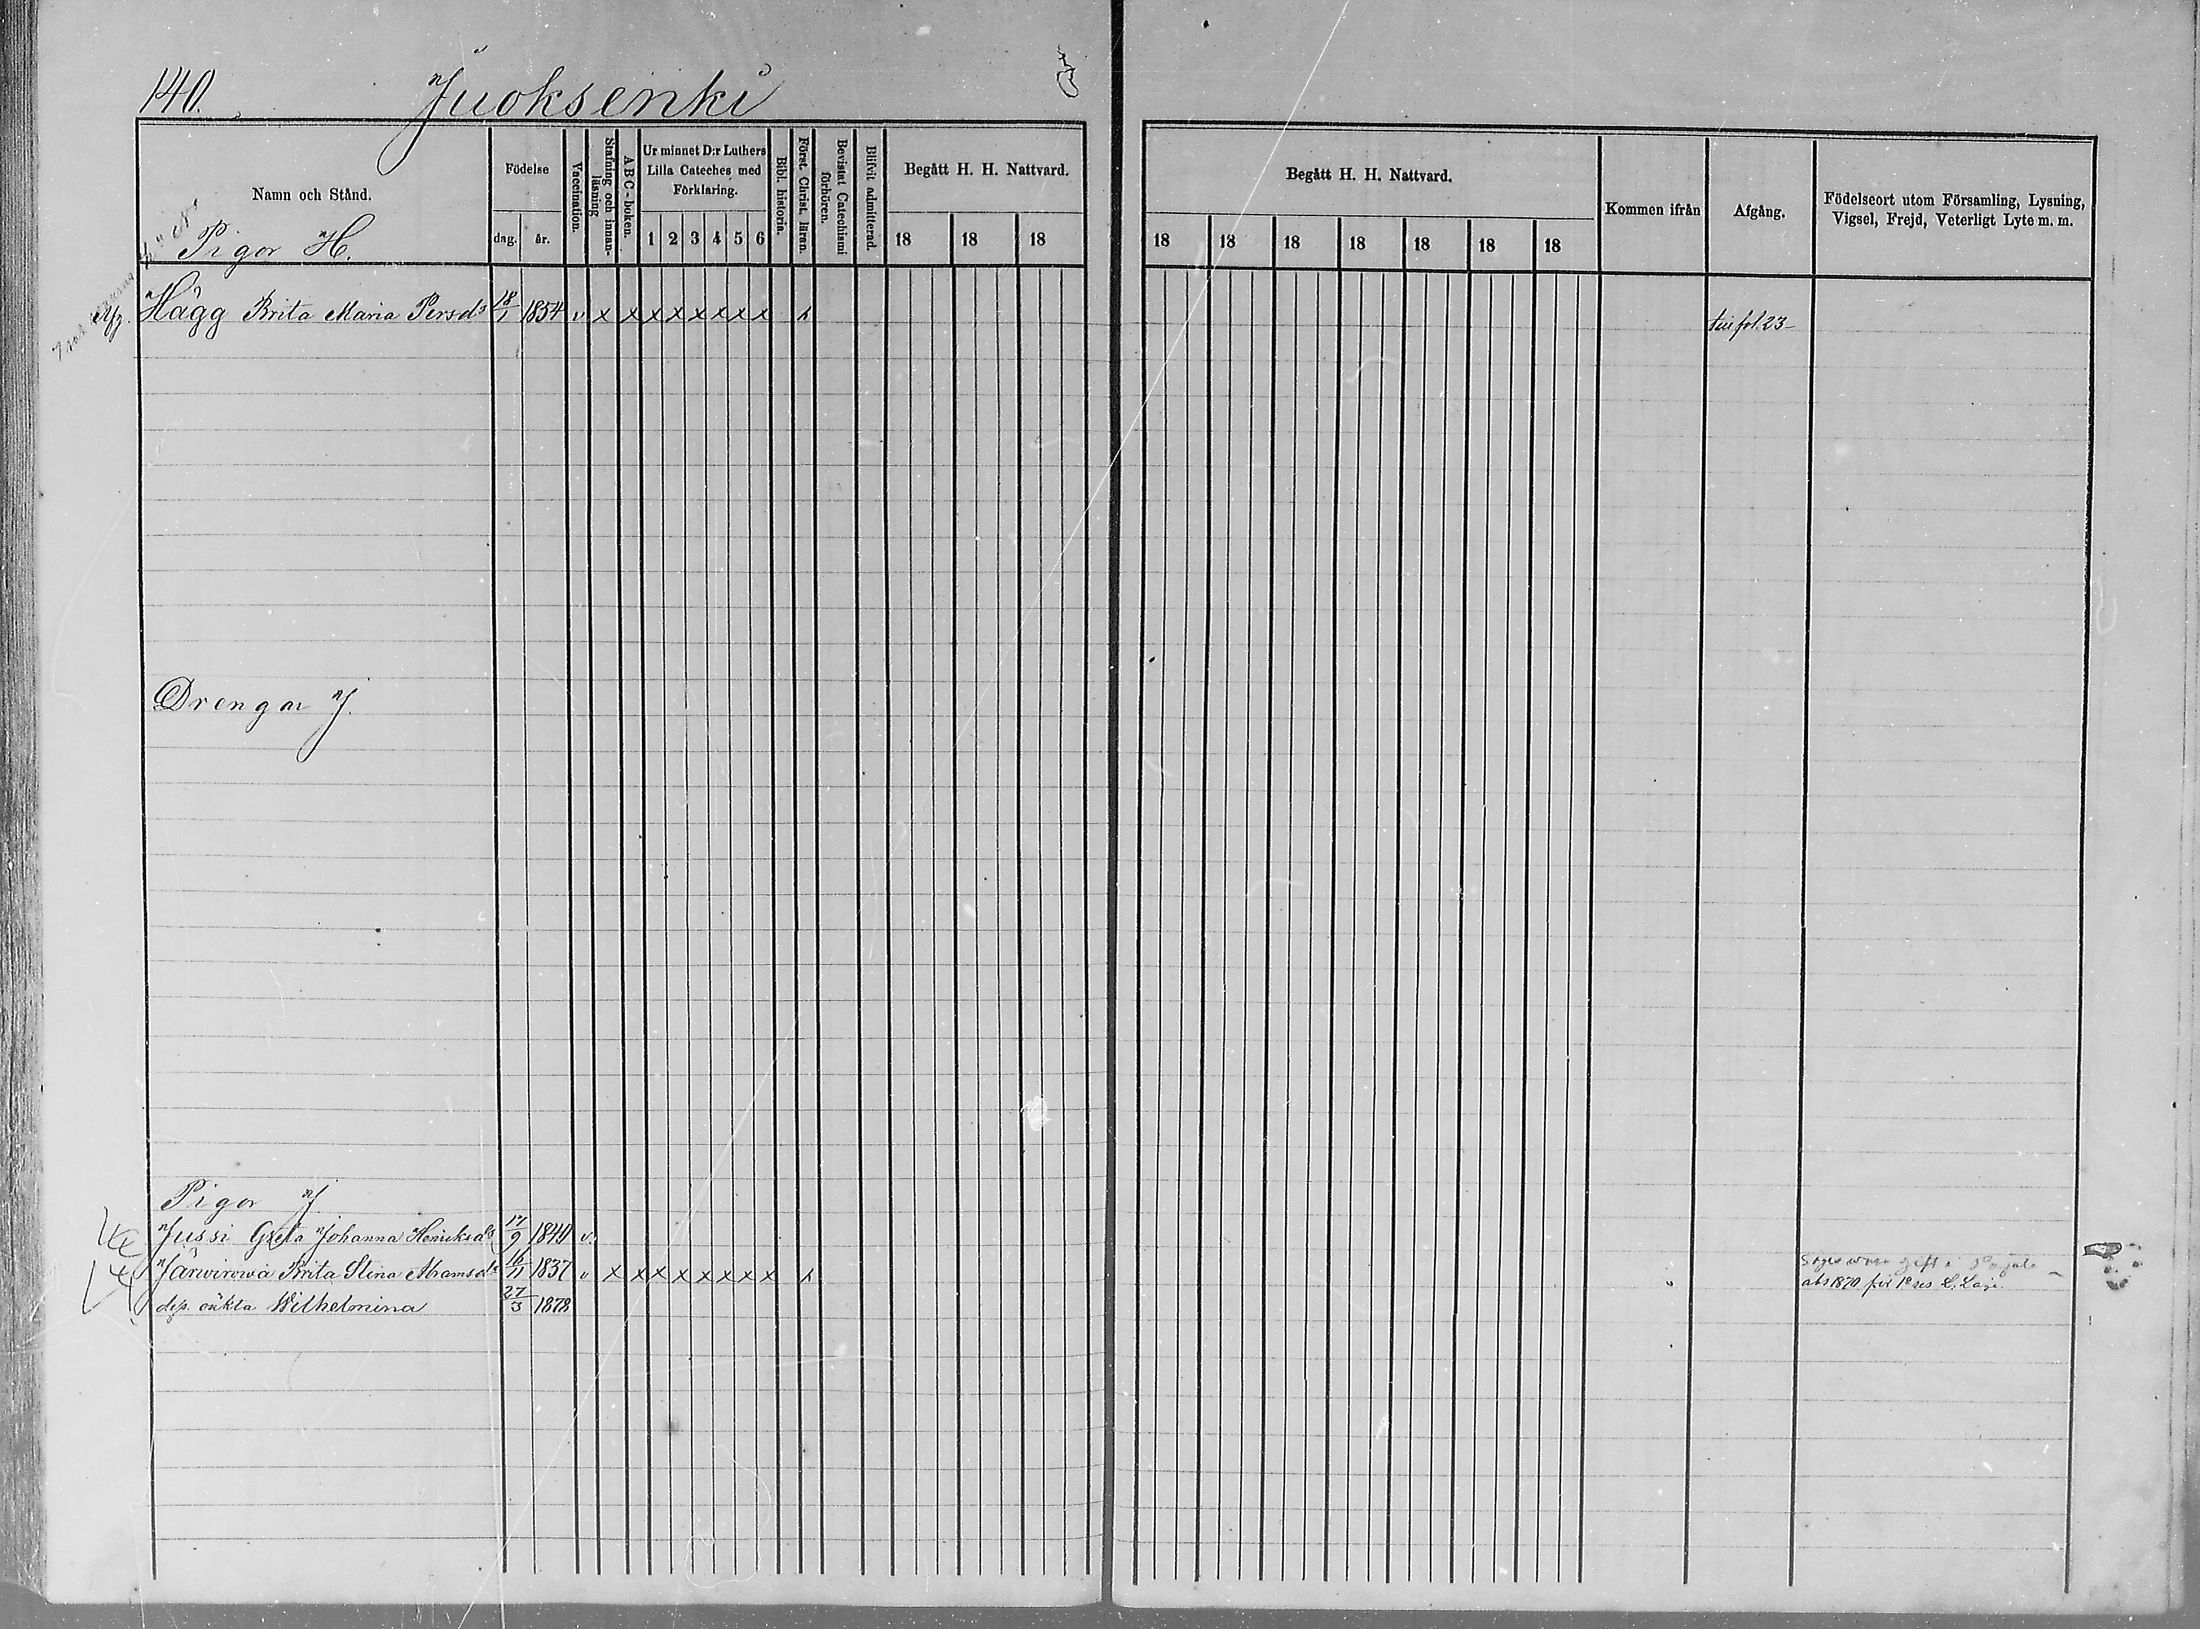 140.
Juoksenki
Namn och Stånd.
Födelse
dag. år.
Vaccination.
Stafning och innan-läsning
A B C-boken.
Ur minnet D:r Luthers
Lilla Cateches med
Förklaring.
1 2 3 4 5 6
Bibl. historia.
Först. Christ. läran.
Bevistat Catechismi förhören.
Blifvit admitterad.
Begått H. H. Nattvard.
18 18 18
Begått H. H. Nattvard.
18 18 18 18 18 18 18
Kommen ifrån
Afgång.
Födelseort utom Församling, Lysning,
Vigsel, Frejd, Veterligt Lyte m. m.
Pigor H.
Hägg Brita Maria Persdr 18/1 1854 v x x x x x x x x x
fol. 23
Drengar J.
Pigor J
Jussi Greta Johanna Henriksdr 17/9 1840 v.
Järvirova Brita Stina Abramsdr 16/11 1837 v x x x x x x x x x
1870
des. oäkta Wilhelmina 27/3 1878